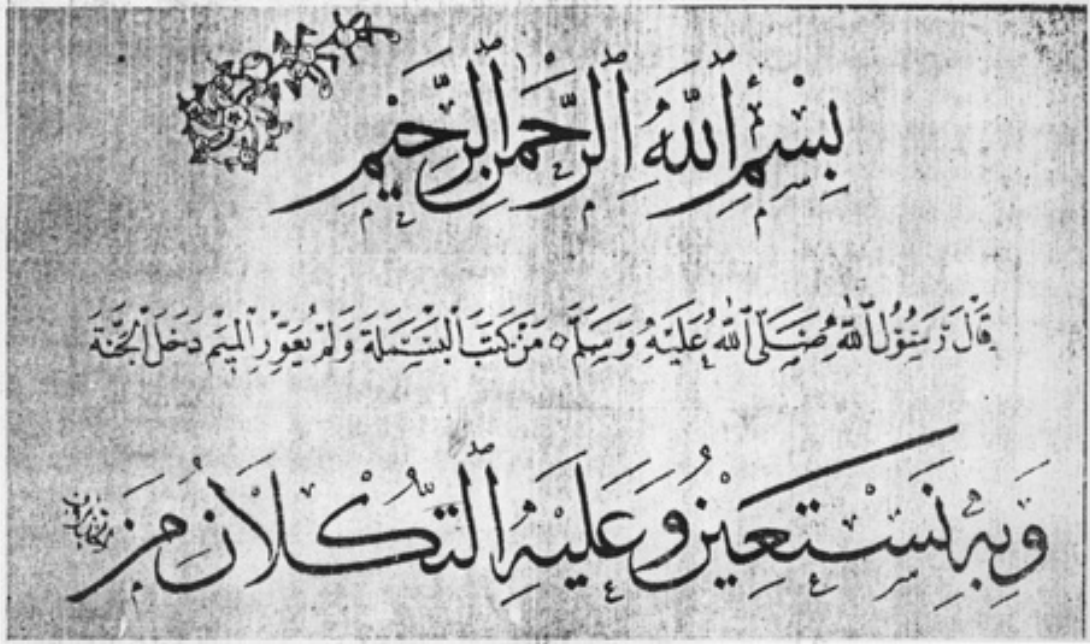 بِسْمِ ٱللَّهِ ٱلرَّحْمَنِ ٱلرَّحِيمِ
قَالَ رَسُولُ ٱللَّهِ صَلَّى ٱللَّهُ عَلَيْهِ وَسَلَّمَ مَنْ كَتَبَ ٱلْبَسْمَلَةَ وَلَمْ يُعَوِّرِ ٱلْمِيمَ دَخَلَ ٱلْجَنَّةَ
وَبِهِ نَسْتَعِينُ وَعَلَيْهِ ٱلتُّكْلَانُ